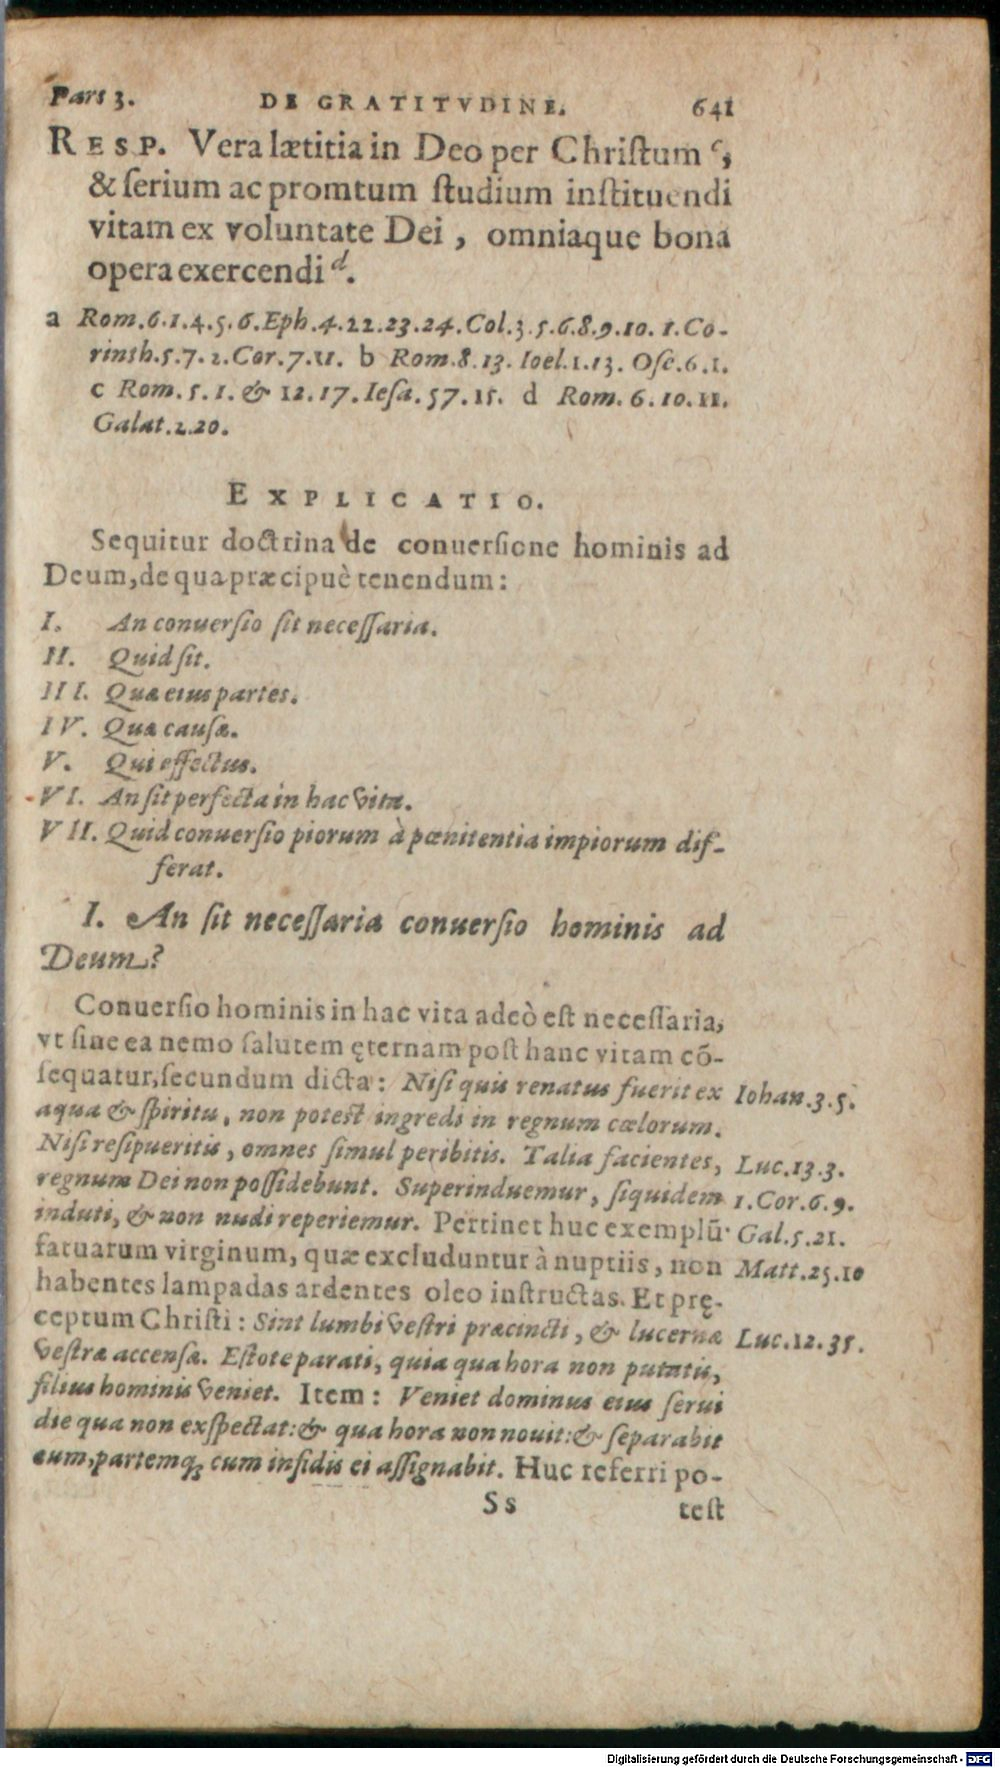 Pars 3. DE GRATITVDINE. 641
RESP. Vera lætitia in Deo per Chriſtum c,
& ſerium ac promtum ſtudium inſtituendi
vitam ex voluntate Dei, omniaque bona
opera exercendi d.
a Rom.6.1.4.5.6.Eph.4.22.23.24.Col.3.5.6.8.9.10.1.Co-
rinth.5.7.2.Cor.7.11. b Rom.8.13.Ioel.1.13. Oſe.6.1.
c Rom.5.1.& 12.17.Ieſa.57.15. d Rom.6.10.11.
Galat.2.20.
EXPLICATIO.
Sequitur doctrina de conuerſione hominis ad
Deum, de qua præcipuè tenendum:
I. An conuerſio ſit neceſſaria.
II. Quid ſit.
III. Quæ eius partes.
IV. Quæ cauſæ.
V. Qui effectus.
VI. An ſit perfecta in hac vita.
VII. Quid conuerſio piorum à pœnitentia impiorum dif-
ferat.
I. An ſit neceſſaria conuerſio hominis ad
Deum?
Conuerſio hominis in hac vita adeò eſt neceſſaria,
vt ſine ea nemo ſalutem ęternam poſt hanc vitam cō-
ſequatur, ſecundum dicta: Niſi quis renatus fuerit ex Iohan.3.5.
aqua & ſpiritu, non poteſt ingredi in regnum cœlorum.
Niſi reſipueritis, omnes ſimul peribitis. Talia facientes, Luc.13.3.
regnum Dei non poſſidebunt. Superinduemur, ſiquidem 1.Cor.6.9.
induti, & non nudi reperiemur. Pertinet huc exemplū Gal.5.21.
fatuarum virginum, quæ excluduntur à nuptiis, non Matt.25.10
habentes lampadas ardentes oleo inſtructas. Et prę-
ceptum Chriſti: Sint lumbi veſtri præcincti, & lucernæ Luc.12.35.
veſtræ accenſæ. Eſtote parati, quia qua hora non putatis,
filius hominis veniet. Item: Veniet dominus eius ſerui
die qua non exſpectat: & qua hora non nouit: & ſeparabit
eum, partemq; cum infidis ei aſſignabit. Huc referri po-
Ss teſt
Digitalisierung gefördert durch die Deutsche Forschungsgemeinschaft - DFG